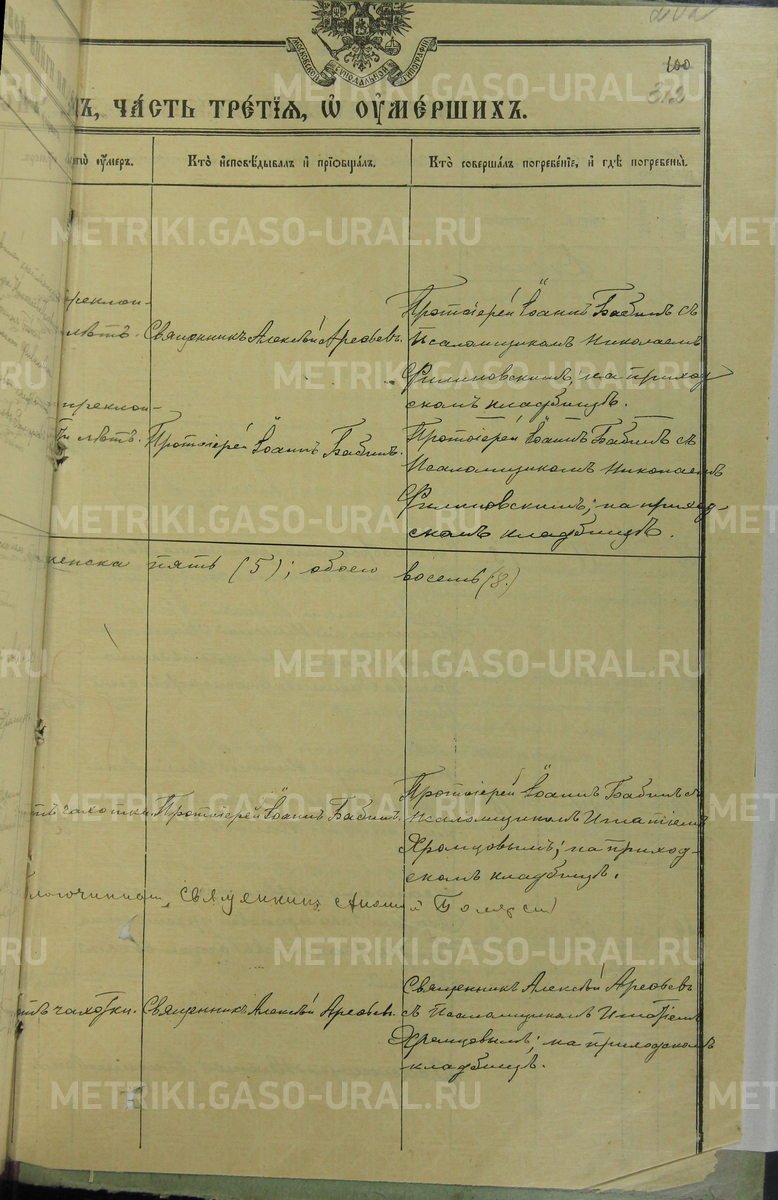 100
312
МОСКОВСКОЙ СѴНОДАЛЬНОЙ ТИПОГРАФІИ
ЧА́СТЬ ТРЕ́ТІѦ, Ѡ҆ ОУ҆МЕ́РШИХЪ.
чегѡ̀ оу҆́меръ.
Кто̀ и҆сповѣ́дывалъ и҆ прїѡбща́лъ.
Кто̀ соверша́лъ погребе́нїе, и҆ гдѣ̀ погребены̀.
преклон-
лѣтъ.
Священникъ Алексѣй Арефьевъ.
Протоіерей Іоаннъ Бабинъ съ
Псаломщикомъ Николаемъ
Филиповскимъ; на приход
скомъ кладбищѣ.
преклон-
лѣтъ.
Протоіерей Іоаннъ Бабинъ.
Протоіерей Іоаннъ Бабинъ съ
Псаломщикомъ Николаемъ
Филиповскимъ; на приход-
скомъ кладбищѣ.
женска пять (5); обоего восемь (8.)
чахотки.
Протоіерей Іоаннъ Бабинъ.
Протоіерей Іоаннъ Бабинъ съ
Псаломщикомъ Игнатіемъ
Храмцовымъ; на приход-
скомъ кладбищѣ.
священникъ
чахотки.
Священникъ Алексѣй Арефьевъ.
Священникъ Алексѣй Арефьевъ
съ Псаломщикомъ Игнатіемъ
Храмцовымъ; на приходскомъ
кладбищѣ.
METRIKI.GASO-URAL.RU